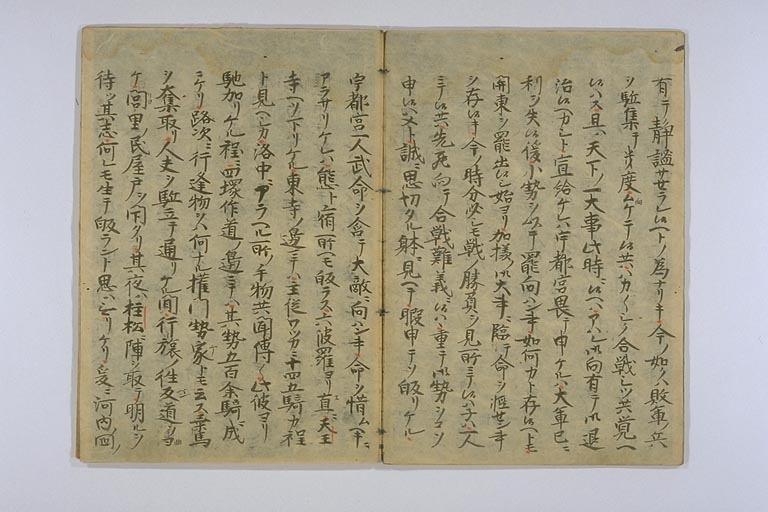 有テ靜謐セラレ候ヘトノ爲ナリキ今ノ如クハ敗軍ノ兵
ヲ駈集テ幾度ムケテ候共ハカ〱シキ合戰シツ共覚ヘ
候ハス且ハ天下ノ一大事此時ニテ候ヘハ向有テ御退
治候ヘカシト宣給ケレハ宇都宮畏テ申ケルハ大軍已ニ
利ヲ失ヒ後小勢ニテ罷向ハン事如何カト存候ヘトモ
関東ヲ罷出シ始ヨリ加様ノ御大事ニ臨テ命ヲ軽セン事
ヲ存候キ今ノ時分必シモ戰ノ勝負ヲ見所ニテ候ハネハ一人
ニテ候共先罷向テ合戰難義ニ候ハヽ重テ御勢ヲコソ
申候ハメト誠ニ思切タル躰ニ見ヘテ暇申テソ皈リケル
宇都宮一人武命ヲ含テ大敵ニ向ハン事命ヲ惜ムヘキニ
アラサリケレハ態ト宿所ヘモ皈ラス六波羅ヨリ直ニ天王
寺ヘソ下リケル東寺ノ邊ニテハ主從ワツカニ十四五騎カ程
ト見ヘシカ洛中ニアラユル所ノ手物共聞傳ヘ此彼ヨリ
馳加リケル程ニ四塚作道ノ邊ニテハ其勢五百余騎ニ成
ニケリ路次ニ行逢物ヲハ何ナル權門勢家トモ云ス乗馬
ヲ奪取リ人夫ヲ駈立テ通リケル間行旅ノ往反道ヲヨ
ケ閭里ノ民屋戸ヲ閇タリ其夜ハ桂松ニ陣ヲ取テ明ルヲ
待ツ其志何レモ生テ皈ラント思ハサリケリ爰ニ河内ノ